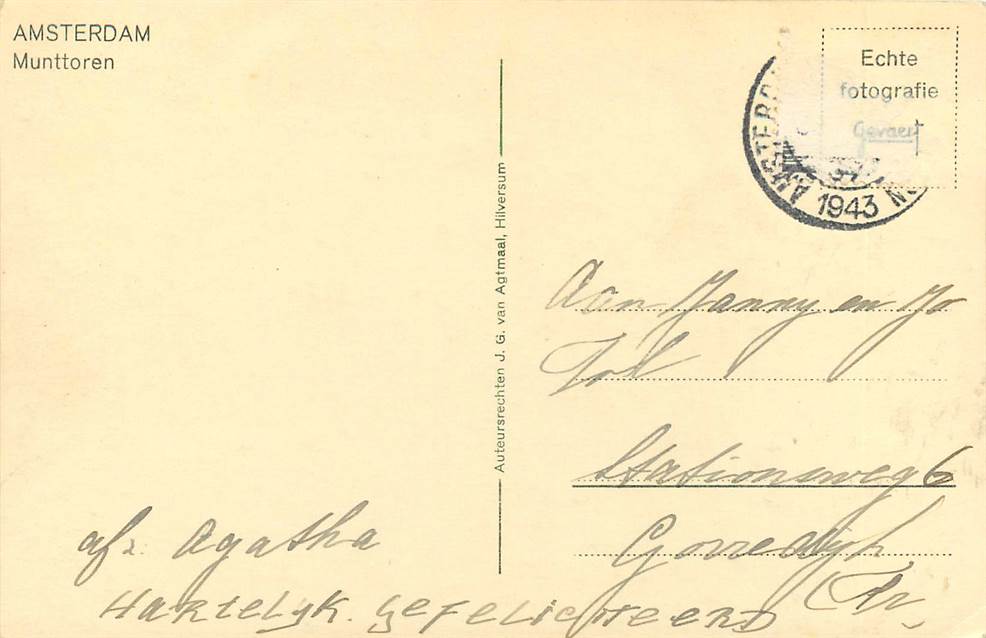 AMSTERDAM
Munttoren
Echte
fotografie
Gevaert
1943
Auteursrechten J. G. van Agtmaal, Hilversum
Aan Janny en Jo
Tol
Stationsweg 6
Gorredijk
(Fr)
afz. Agatha
Hartelijk gefeliciteerd